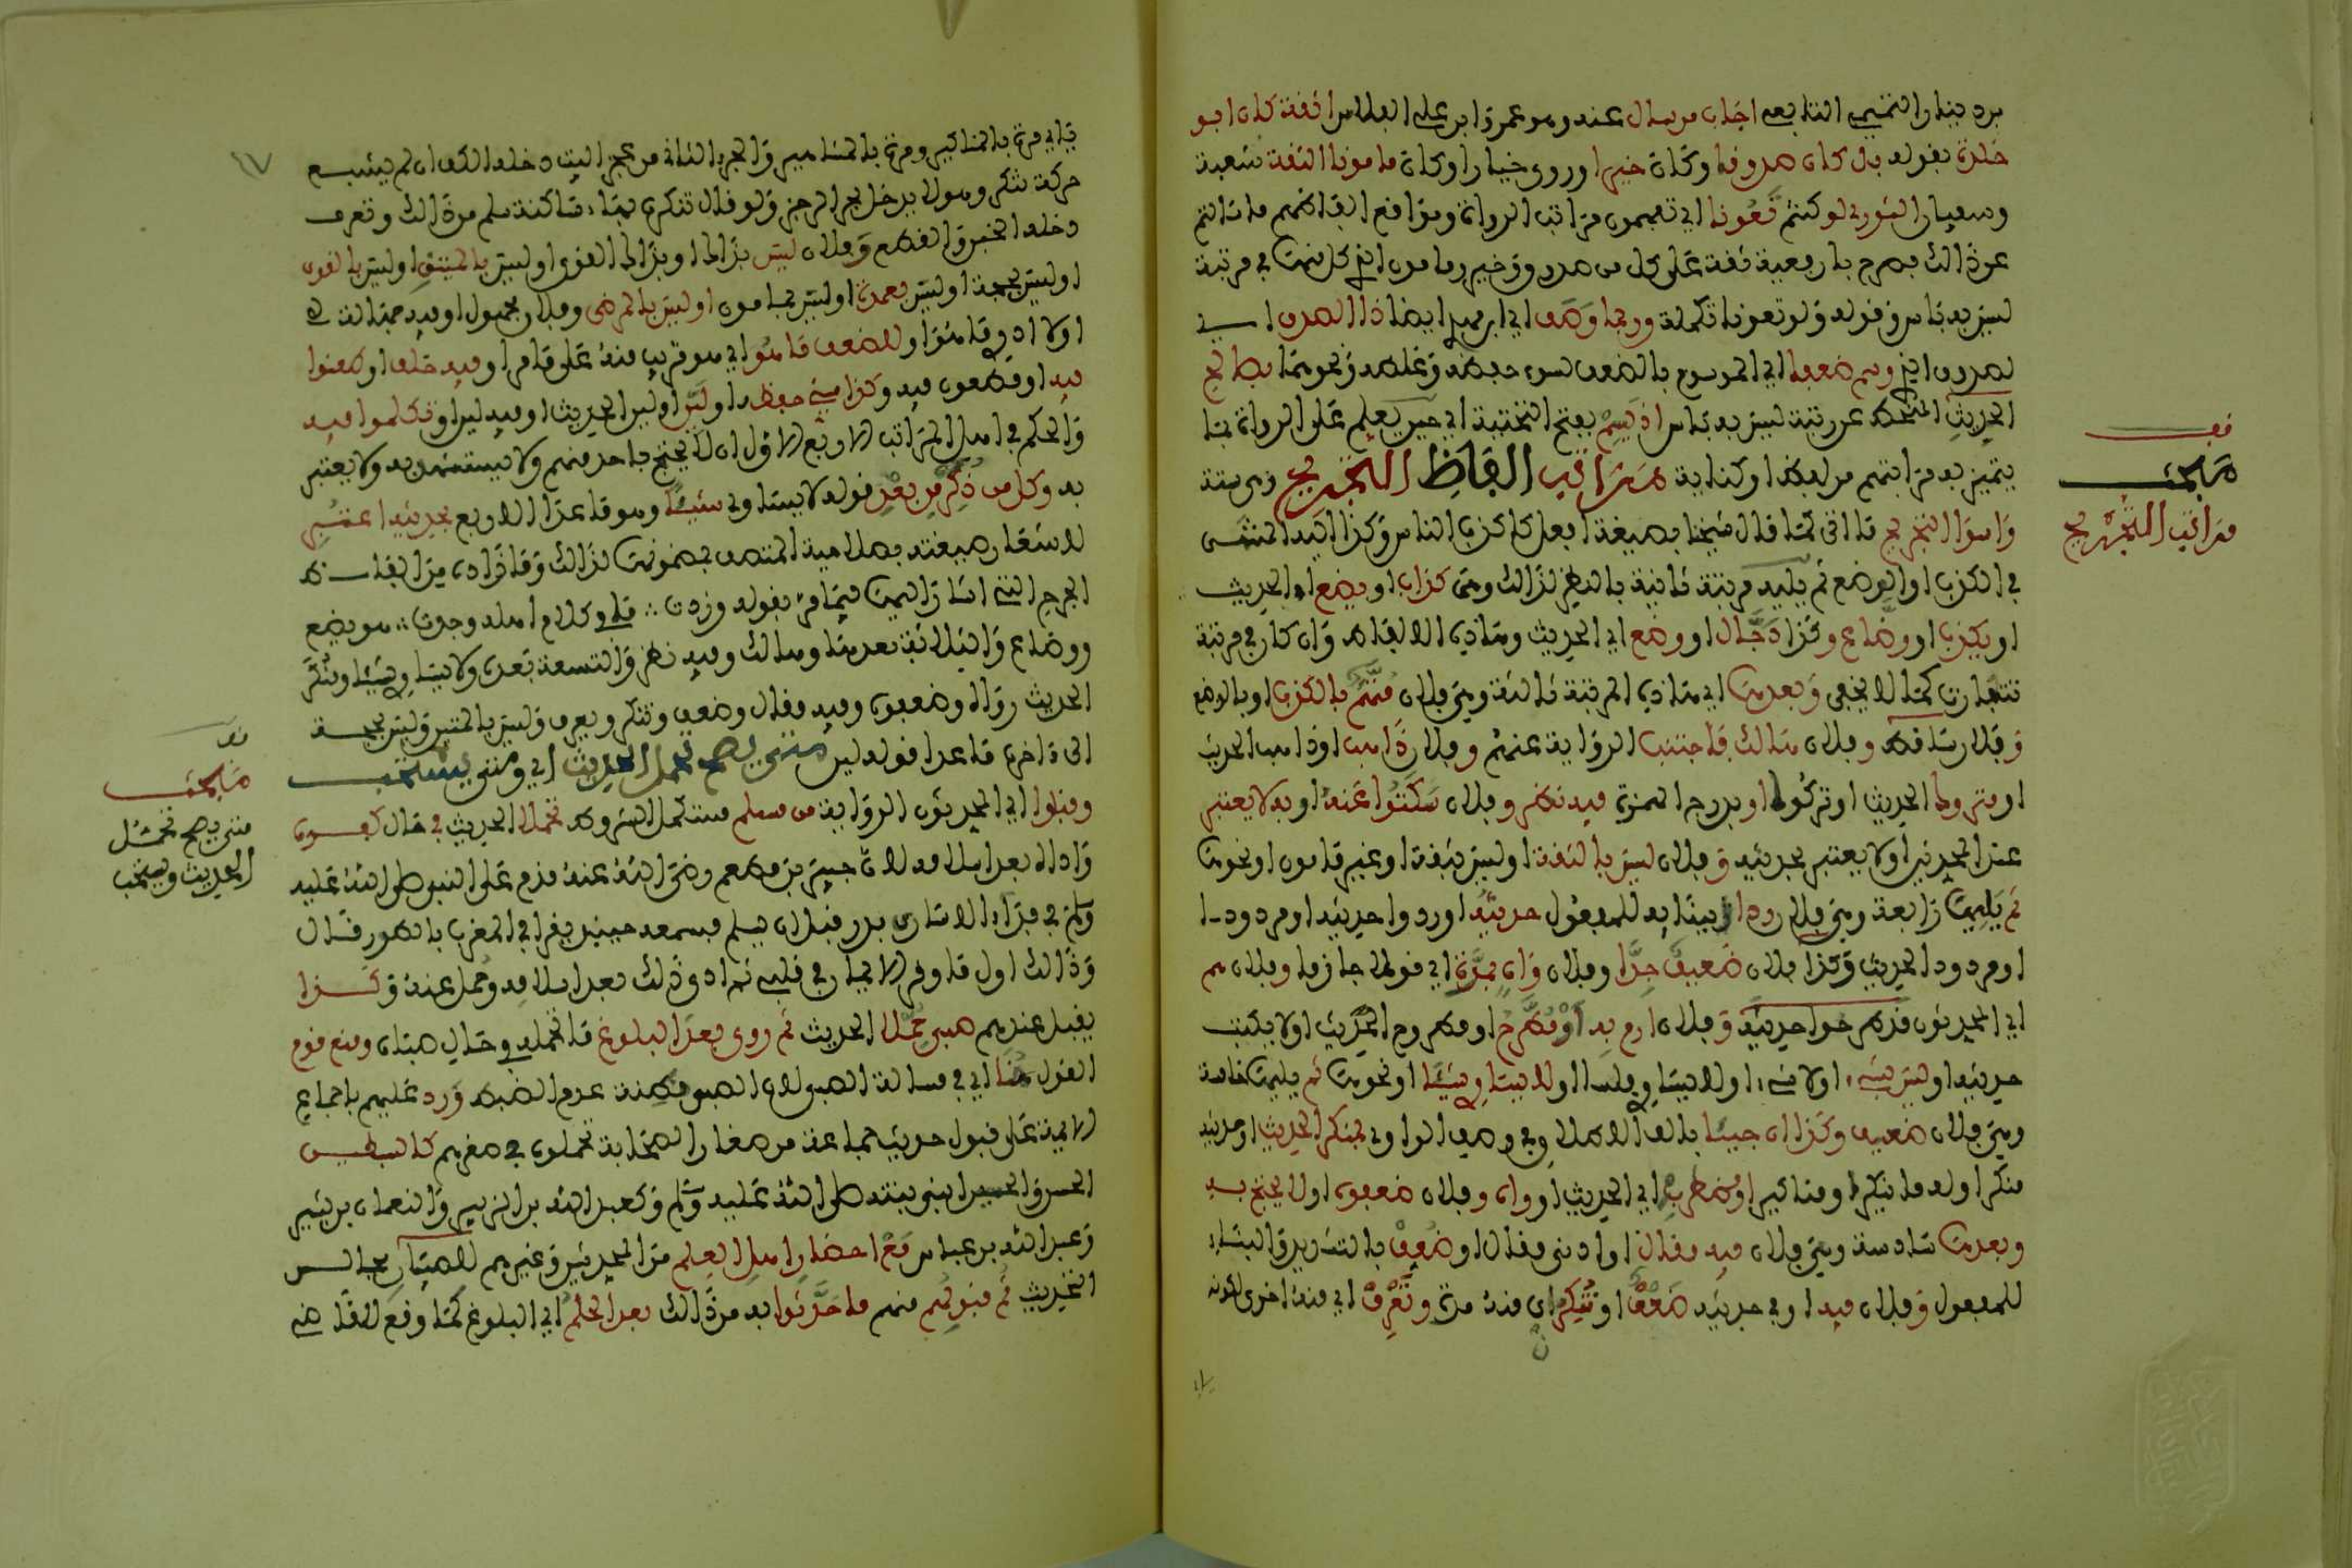 بن دينار التميمي التابعي اجاب من سال عنه وهو عمرو ابن علي الفلاس اثقة كان ابو
خلدة بقوله بل كان صدوقا وكان خيرا وروى خيارا وكان مامونا الثقة شعبة
وسفيان الثوري لو كنتم تعونا اي تفهمون مراتب الرواة ومواقع الفاظهم ما سالتم
عن ذالك فصرح بارفعية ثقة على كل من صدوق وخير ومامون الخ كل منها في مرتبة
ليس به باس وقوله ولو تعونا تكملة وربما وصف اي ابن مهدي ايضا ذا الصدق اي
لصدوق الخ وسم ضعفا اي الموسوم بالضعف لسوء حفظه وغلطه ونحوهما بصالح
الحديث المنحط عن رتبة ليس به باس اذ يسم بفتح التحتية اي حين يعلم على الرواة بما
يتميز به مراتبهم من لفظ او كتابة مراتب الفاظ التجريح وهي ستة
واسوا التجريح ما اتى كما قال شيخنا بصيغة افعل كاكذب الناس وكذا اليه المنتهى
في الكذب او الوضع ثم يليه مرتبة ثانية بالنظر لذالك وهي كذاب او يضع الحديث
او يكذب او وضاع وكذا دجال او وضع اي الحديث وهاذه الالفاظ وان كان في مرتبة
تتفاوت كما لا يخفى وبعدها اي هاذه المرتبة ثالثة وهي فلان متهم بالكذب او بالوضع
وفلان ساقط وفلان هالك فاجتنب الرواية عنهم وفلان ذاهب او ذاهب الحديث
او متروك الحديث او تركوه او بدرج الهمزة فيه نظر وفلان سكتوا عنه او به لا يعتبر
عند المحدثين او لا يعتبر بحديثه وفلان ليس بالثقة او ليس بثقة او غير مامون او نحوها
ثم يليها رابعة وهي فلان ردا ببنائه للمفعول حديثه او ردوا حديثه او مردود ا
او مردود الحديث وكذا فلان ضعيف جدا وفلان واه بمرة اي قولا جازما وفلان هم
اي المحدثون قد طرحوا حديثه وفلان ارم به او مطرح او مطروح الحديث او لا يكتب
حديثه او ليس بشيء او لا شيء او لا يساوي فلسا او لا يساوي شيئا او نحوها ثم يليها خامسة
وهي فلان ضعيف وكذا ان جيئا بالف الاطلاق في وصف الراوي بمنكر الحديث او حديثه
منكر او له ما ينكر او مناكير او مضطرب اي الحديث او واه وفلان ضعفوه او لا يحتج به
وبعدها سادسة وهي فلان فيه مقال او ادنى مقال او ضعف بالتشديد والبناء
للمفعول وفلان فيه او في حديثه ضعف او تنكر اي منه مرة وتعرف اي منه اخرى لكونه
مبحث
مراتب التجريح
ياتي مرة بالمناكير ومرة بالمشاهير والجزء الثاني من عجز البيت دخله الكف ان لم يشبع
حركة تنكر وهو لا يدخل بحر الرجز ولو قال تنكره بهاء ساكنة سلم من ذالك وتعرف
دخله الخبن والقطع وفلان ليس بذاك او بذاك القوي او ليس بالمتين او ليس بالقوي
او ليس بحجة او ليس بعمدة او ليس بمامون او ليس بالمرضي وفلان مجهول او فيه جهالة
اولا ادري ما هو او للضعف ما هو اي هو قريب منه على ما مر او فيه خلف او طعنوا
فيه او مطعون فيه وكذا سيئ حفظ او لين او لين الحديث او فيه لين او تكلموا فيه
والحكم في اهل المراتب الاربع الاول ان لا يحتج باحد منهم ولا يستشهد به ولا يعتبر
به وكل من ذكر من بعد قوله لا يساوي شيئا وهو ما عدا الاربع بحديثه اعتبر
لاشعار صيغته بصلاحية المتصف بمضمونها لذالك وما زاده من الفاظ
الجرح التي اشار اليها فيما مر بقوله وزدت ما في كلام اهله وجدت هو يضع
ووضاع والثلاثة بعدها وهالك وفيه نظر والتسعة بعده ولا يساوي شيئا ومنكر
الحديث وواه وضعفوه وفيه مقال وضعف وتنكر وتعرف وليس بالمتين وليس بحجة
الى اخره ما عدا قوله لين متى يصح تحمل الحديث اي ومتى يستحب
وقبلوا اي المحدثون الرواية من مسلم مستكمل الشروط تحملا الحديث في حال كفره
واداه بعد اسلامه لان جبير بن مطعم رضي الله عنه قدم على النبي صلى الله عليه
وسلم في فداء اسارى بدر قبل ان يسلم فسمعه حينئذ يقرا في المغرب بالطور قال
وذالك اول ما وقر الايمان في قلبي ثم ادى ذلك بعد اسلامه وحمل عنه وكذا
يقبل عندهم صبي حملا الحديث ثم روى بعد البلوغ ما تحمله في حال صباه ومنع قوم
القبول هنا اي في مسالة الصبي لان الصبي مظنة عدم الضبط ورد عليهم باجماع
الائمة على قبول حديث جماعة من صغار الصحابة تحملوه في صغرهم كالسبطين
الحسن والحسين ابني بنته صلى الله عليه وسلم وكعبد الله بن الزبير والنعمان بن بشير
وعبد الله بن عباس مع احضار اهل العلم من المحدثين وغيرهم للصبيان مجالس
الحديث ثم قبولهم منهم ما حدثوا به من ذالك بعد الحلم اي البلوغ كما وقع للقاضي
مبحث
متى يصح تحمل
الحديث ويستحب